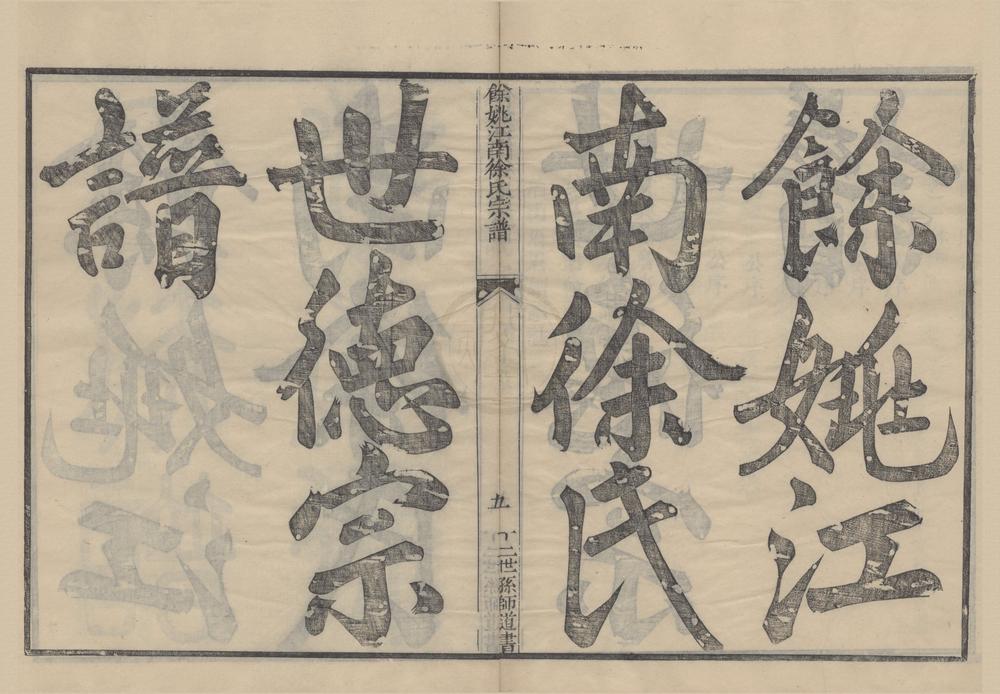 餘姚江
南徐氏
餘姚江南徐氏宗譜
五
二世孫師道書
世德宗
譜